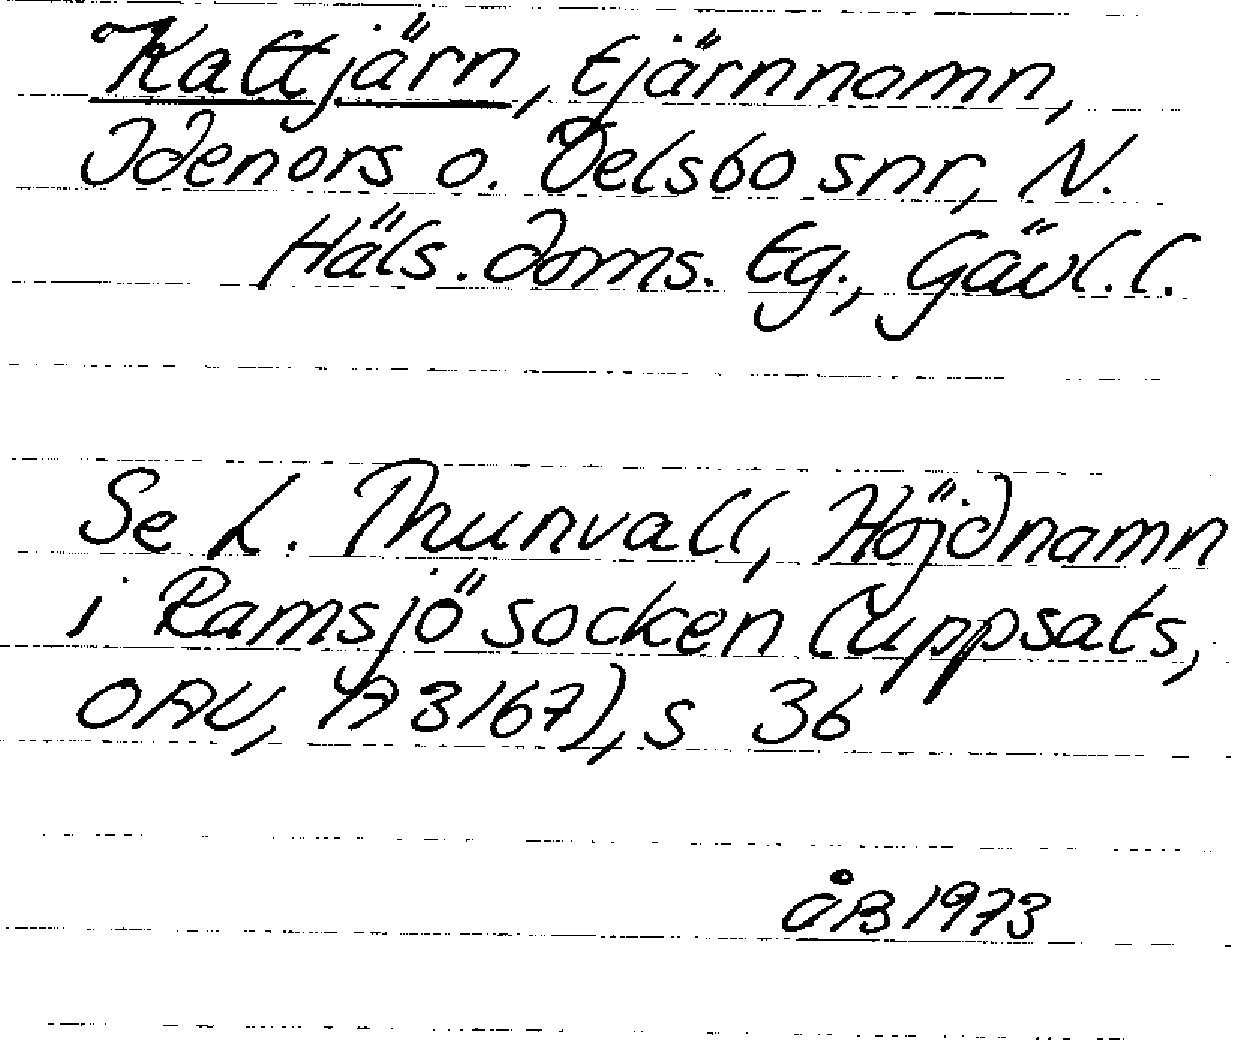 Kattjärn, tjärnnamn,
Idenors o. Delsbo snr, N.
Häls. doms. tg., Gävl. l.
Se L. Thunvall, Höjdnamn
i Ramsjö socken (uppsats,
OAU, A 3167), s 36
ÅB 1973